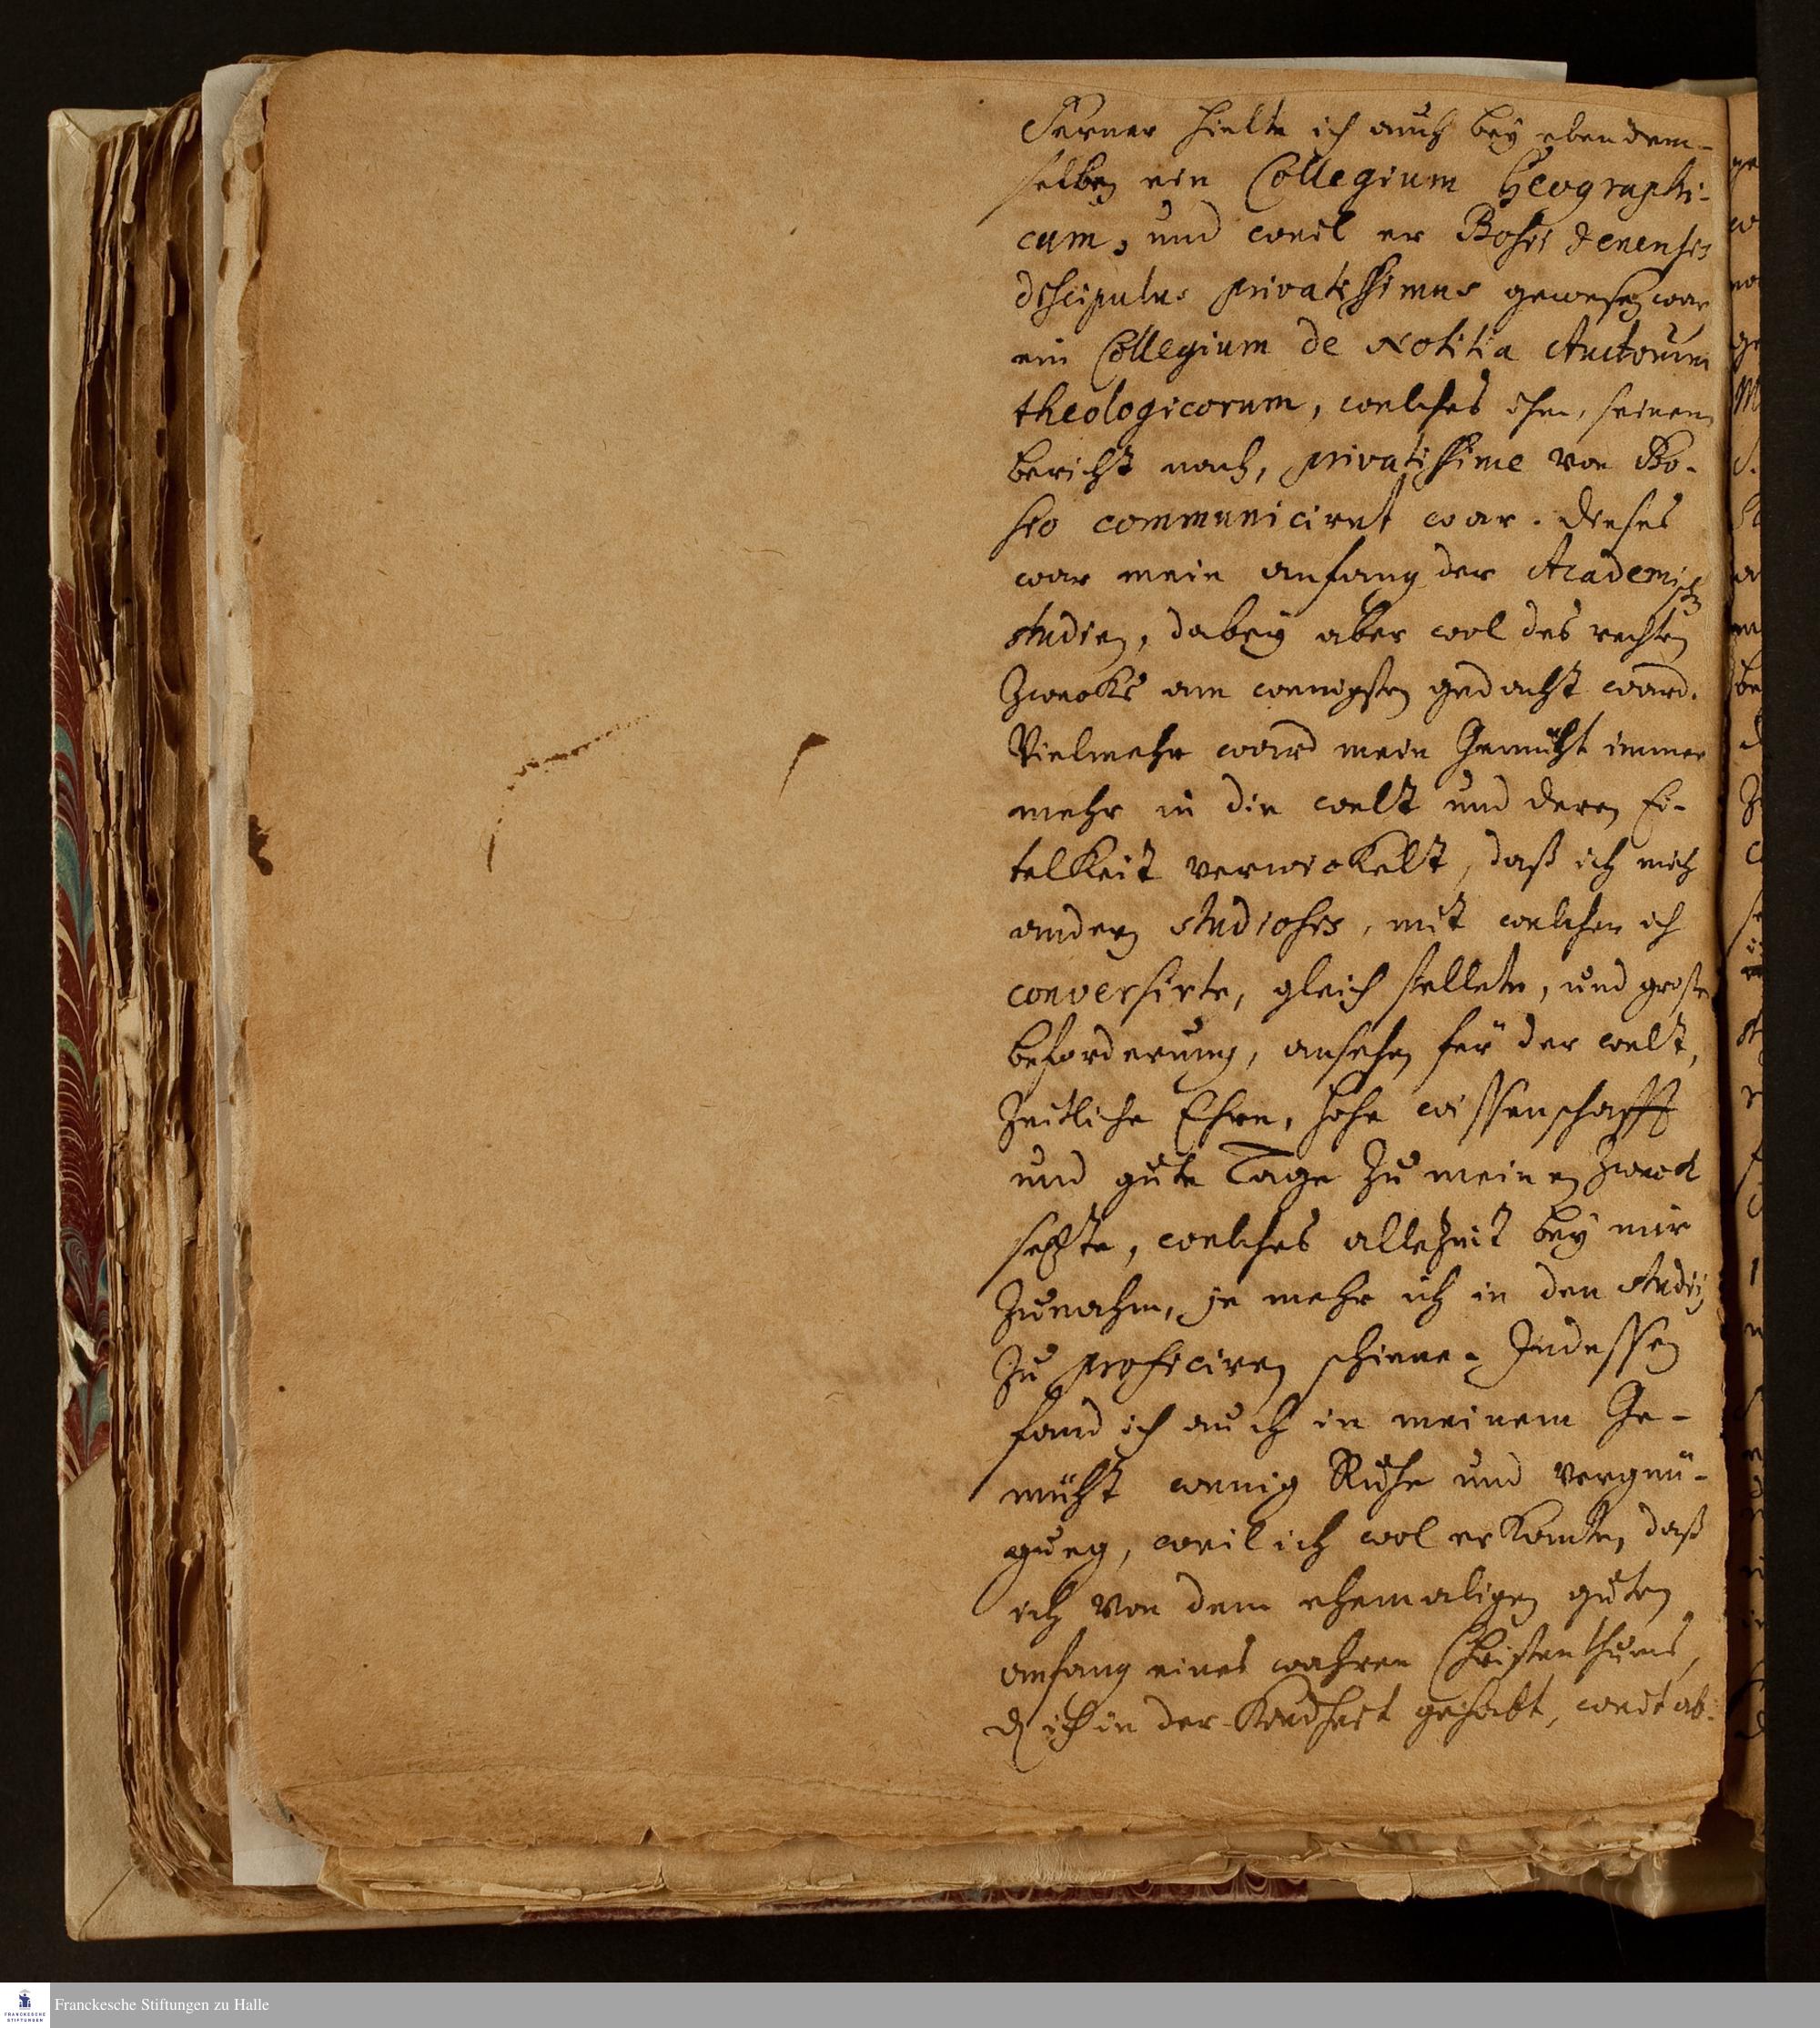 Ferner hielte ich auch bey eben dem-
selben ein Collegium Geographi-
cum, und weil er Bosii Jenensis
discipulus privatissimus gewesen war
ein Collegium de Notitia Auctorum
theologicorum, welches ihm, seinem
bericht nach, privatissime von Bo-
sio communiciret war. Dieses
war mein anfang der Academischen
studien, dabey aber wol des rechten
Zwecks am wenigsten gedacht ward.
Vielmehr ward mein Gemüht immer
mehr in die welt und deren Ei-
telkeit verwickelt, daß ich mich
andern studiosis, mit welchen ich
conversirte, gleich stellete, und große
beforderung, ansehen für der welt,
Zeitliche Ehre, hohe wissenschafft
und gute Tage zu meinen Zweck
setzte, welches allezeit bey mir
Zunahm, je mehr ich in den studiis
zu proficiren schiene. Indessen
fand ich auch in meinem Ge-
müht wenig Ruhe und vergnü-
gung, weil ich wol erkante, daß
ich von dem ehemaligen guten
anfang eines wahren Christenthums,
den ich in der Kindheit gehabt, weit ab-
Franckesche Stiftungen zu Halle
FRANCKESCHE
STIFTUNGEN